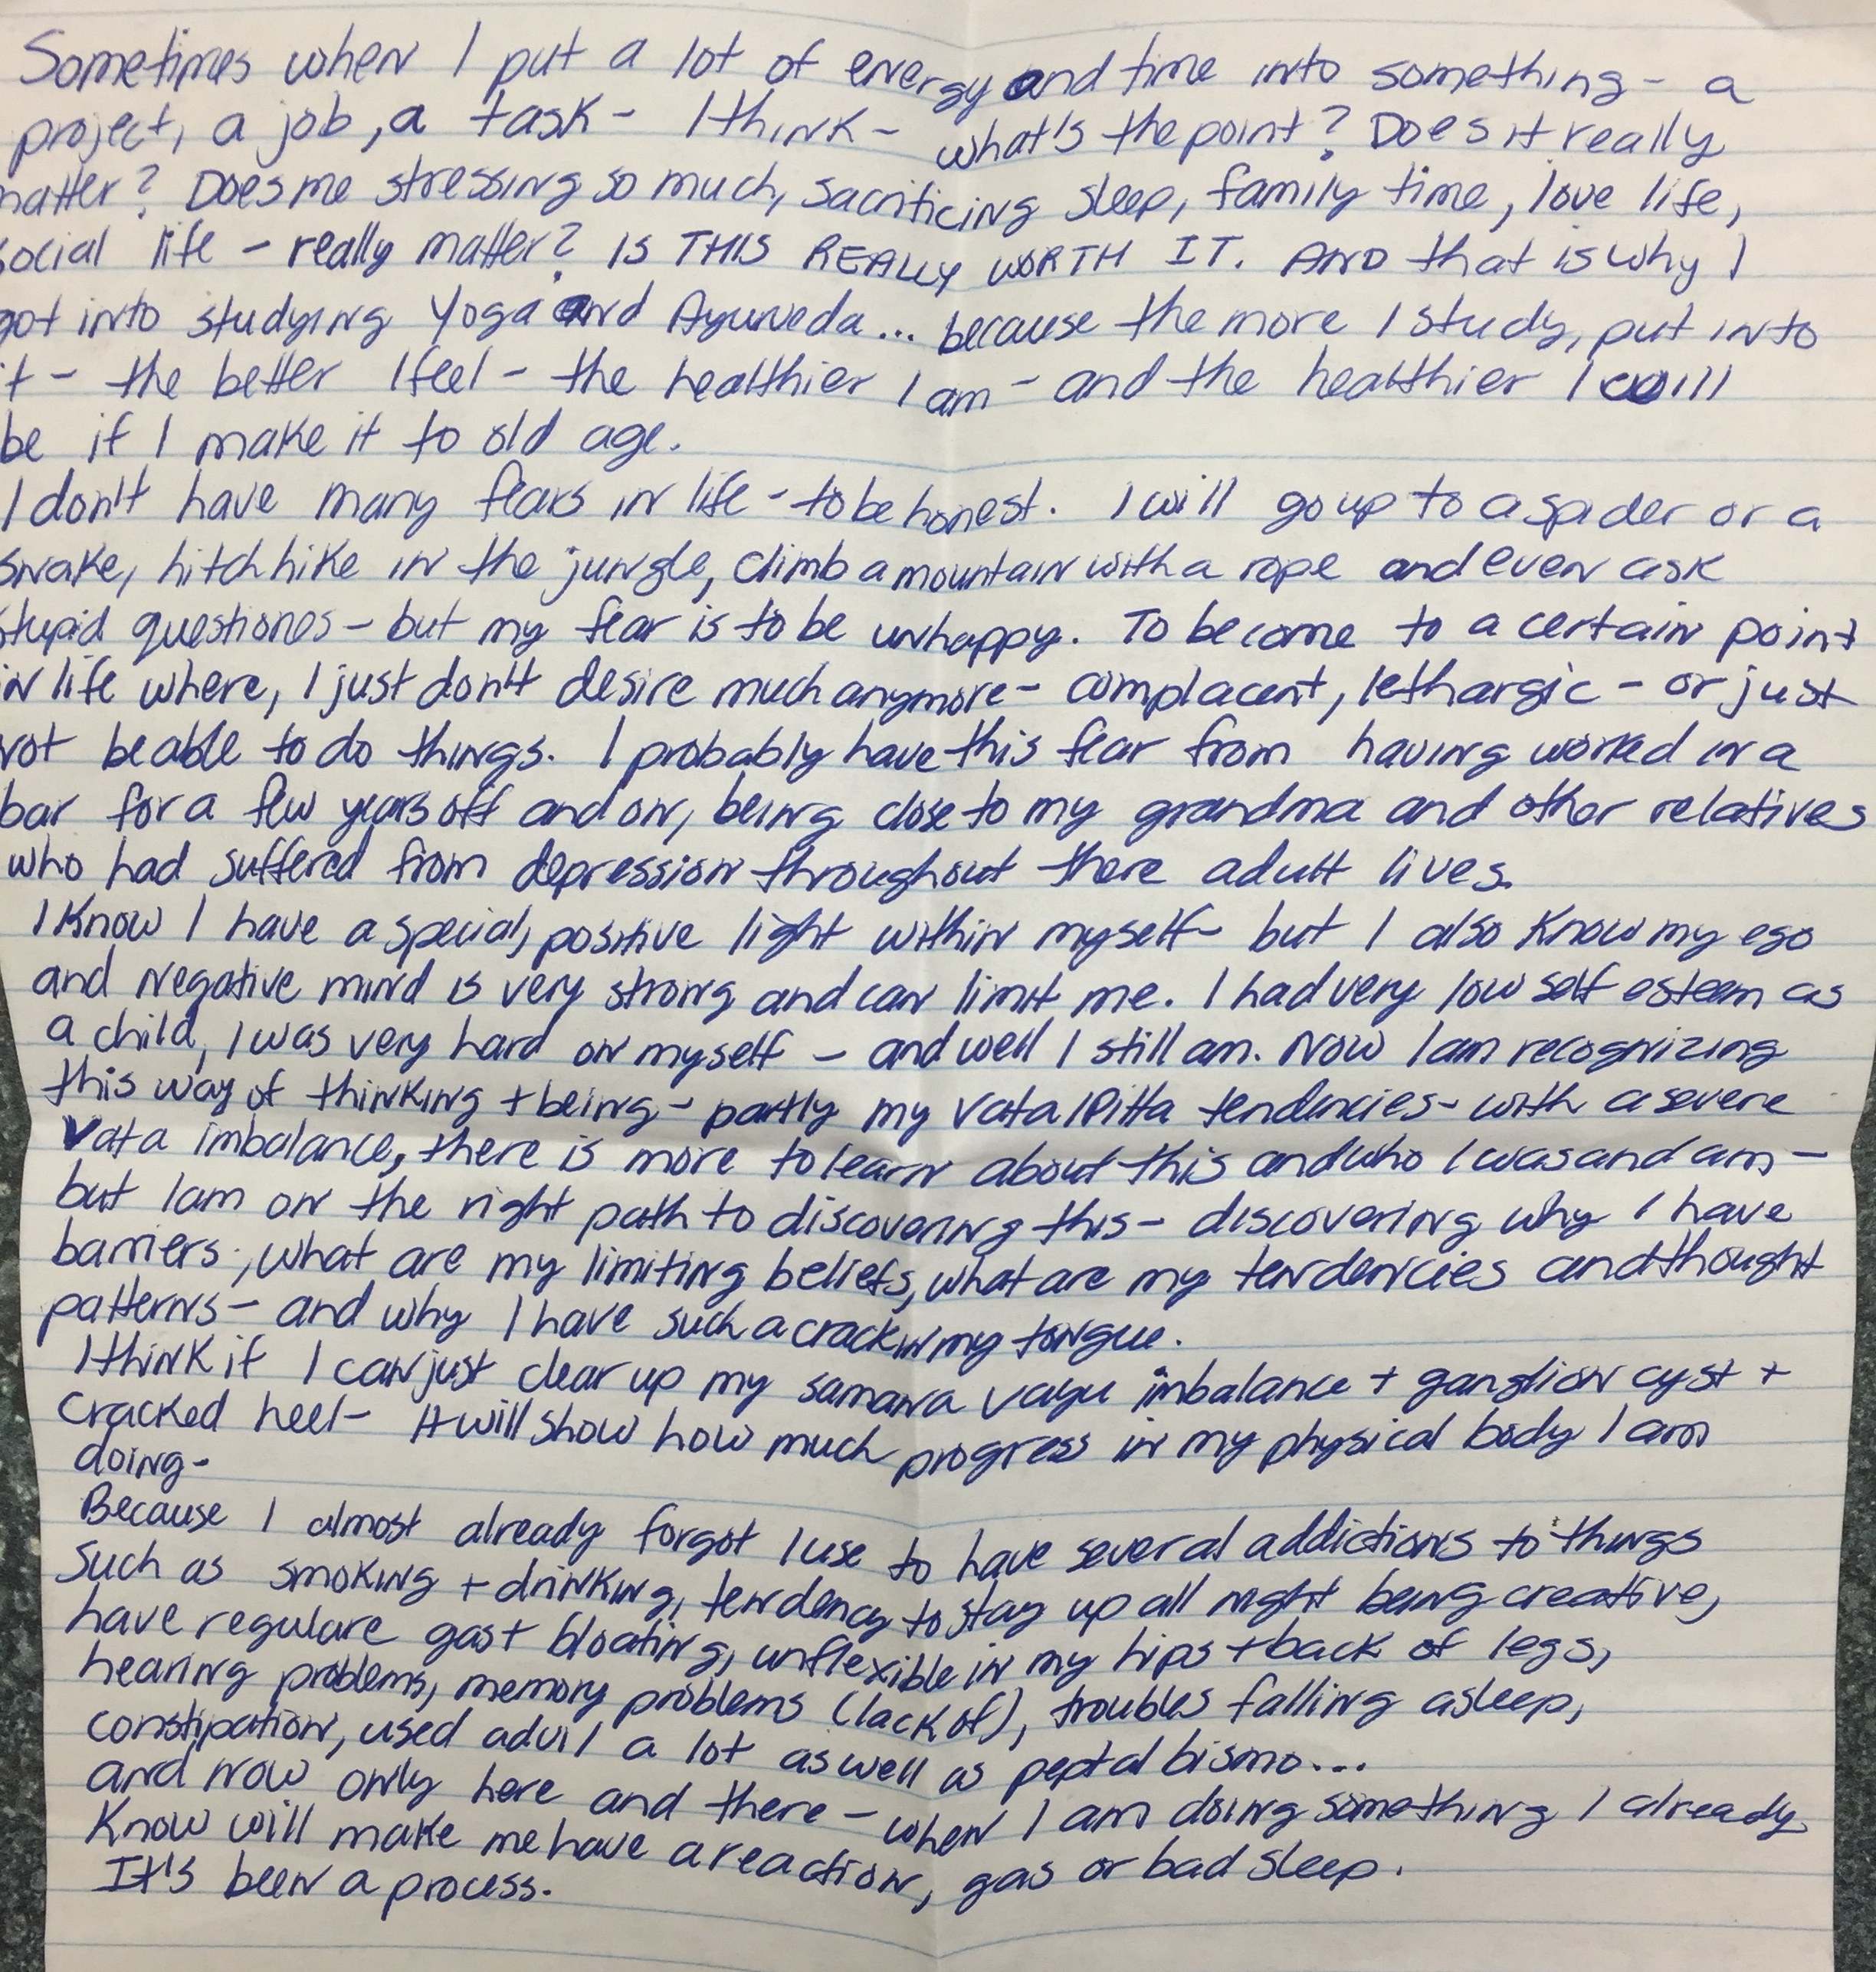 Sometimes when I put a lot of energy and time into something - a
project, a job, a task - I think - what's the point? Does it really
matter? Does me stressing so much, sacrificing sleep, family time, love life,
social life - really matter? IS THIS REALLY WORTH IT. AND that is why I
got into studying Yoga and Ayurveda... because the more I study, put into
it - the better I feel - the healthier I am - and the healthier I will
be if I make it to old age.
I don't have many fears in life - to be honest. I will go up to a spider or a
snake, hitchhike in the jungle, climb a mountain with a rope and even ask
stupid questiones - but my fear is to be unhappy. To become to a certain point
in life where, I just don't desire much anymore - complacent, lethargic - or just
not be able to do things. I probably have this fear from having worked in a
bar for a few years off and on, being close to my grandma and other relatives
who had suffered from depression throughout there adult lives.
I know I have a special, positive light within myself - but I also know my ego
and negative mind is very strong and can limit me. I had very low self esteem as
a child, I was very hard on myself - and well I still am. Now I am recognizing
this way of thinking + being - partly my Vata/Pitta tendencies - with a severe
Vata imbalance, there is more to learn about this and who I was and am -
but I am on the right path to discovering this - discovering why I have
barriers, what are my limiting beliefs, what are my tendencies and thought
patterns - and why I have such a crack in my tongue.
I think if I can just clear up my samana vayu imbalance + ganglion cyst +
cracked heel - It will show how much progress in my physical body I am
doing -
Because I almost already forgot I use to have several addictions to things
such as smoking + drinking, tendency to stay up all night being creative,
have regulare gas + bloating, unflexible in my hips + back of legs,
hearing problems, memory problems (lack of), troubles falling asleep,
constipation, used advil a lot as well as peptal bismo...
and now only here and there - when I am doing something I already
know will make me have a reaction, gas or bad sleep.
It's been a process.